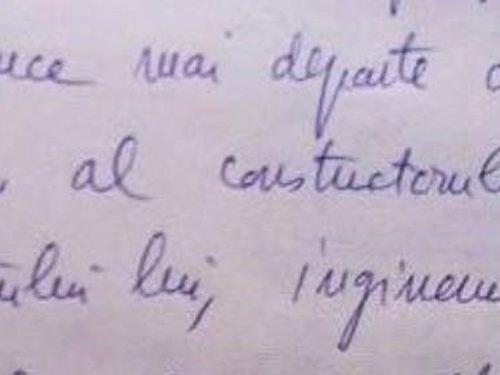 uce mai departe
al constuctorul
ului lui, ingineru